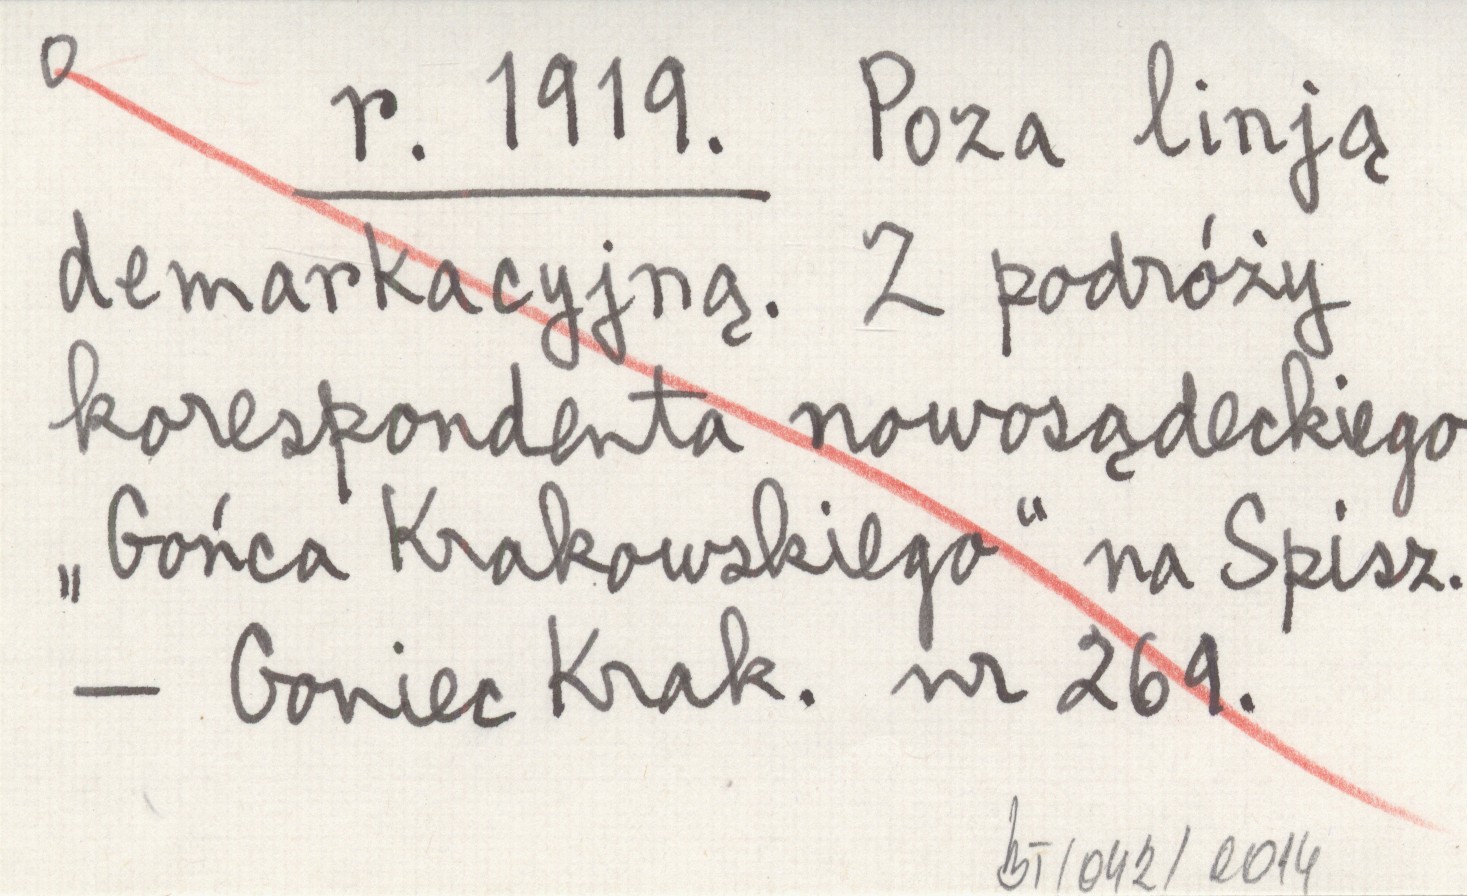 O
r. 1919. Poza linją
demarkacyjną. Z podróży
korespondenta nowosądeckiego
„Gońca Krakowskiego“ na Spisz.
— Goniec Krak. nr 269.
BT/042/2014